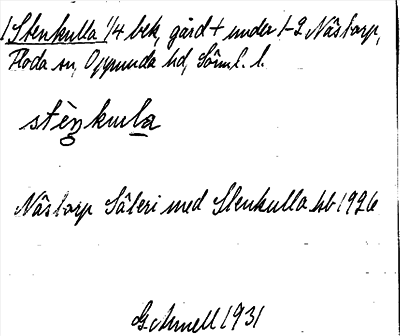 1 Stenkulla 1/4 bek, gård + under 1-2 Nästorp,
Floda sn, Oppunda hd, Söml. l.
stèŋkuɯla
Nästorp Säteri med Stenkulla hb 1926
G. Ahnell 1931